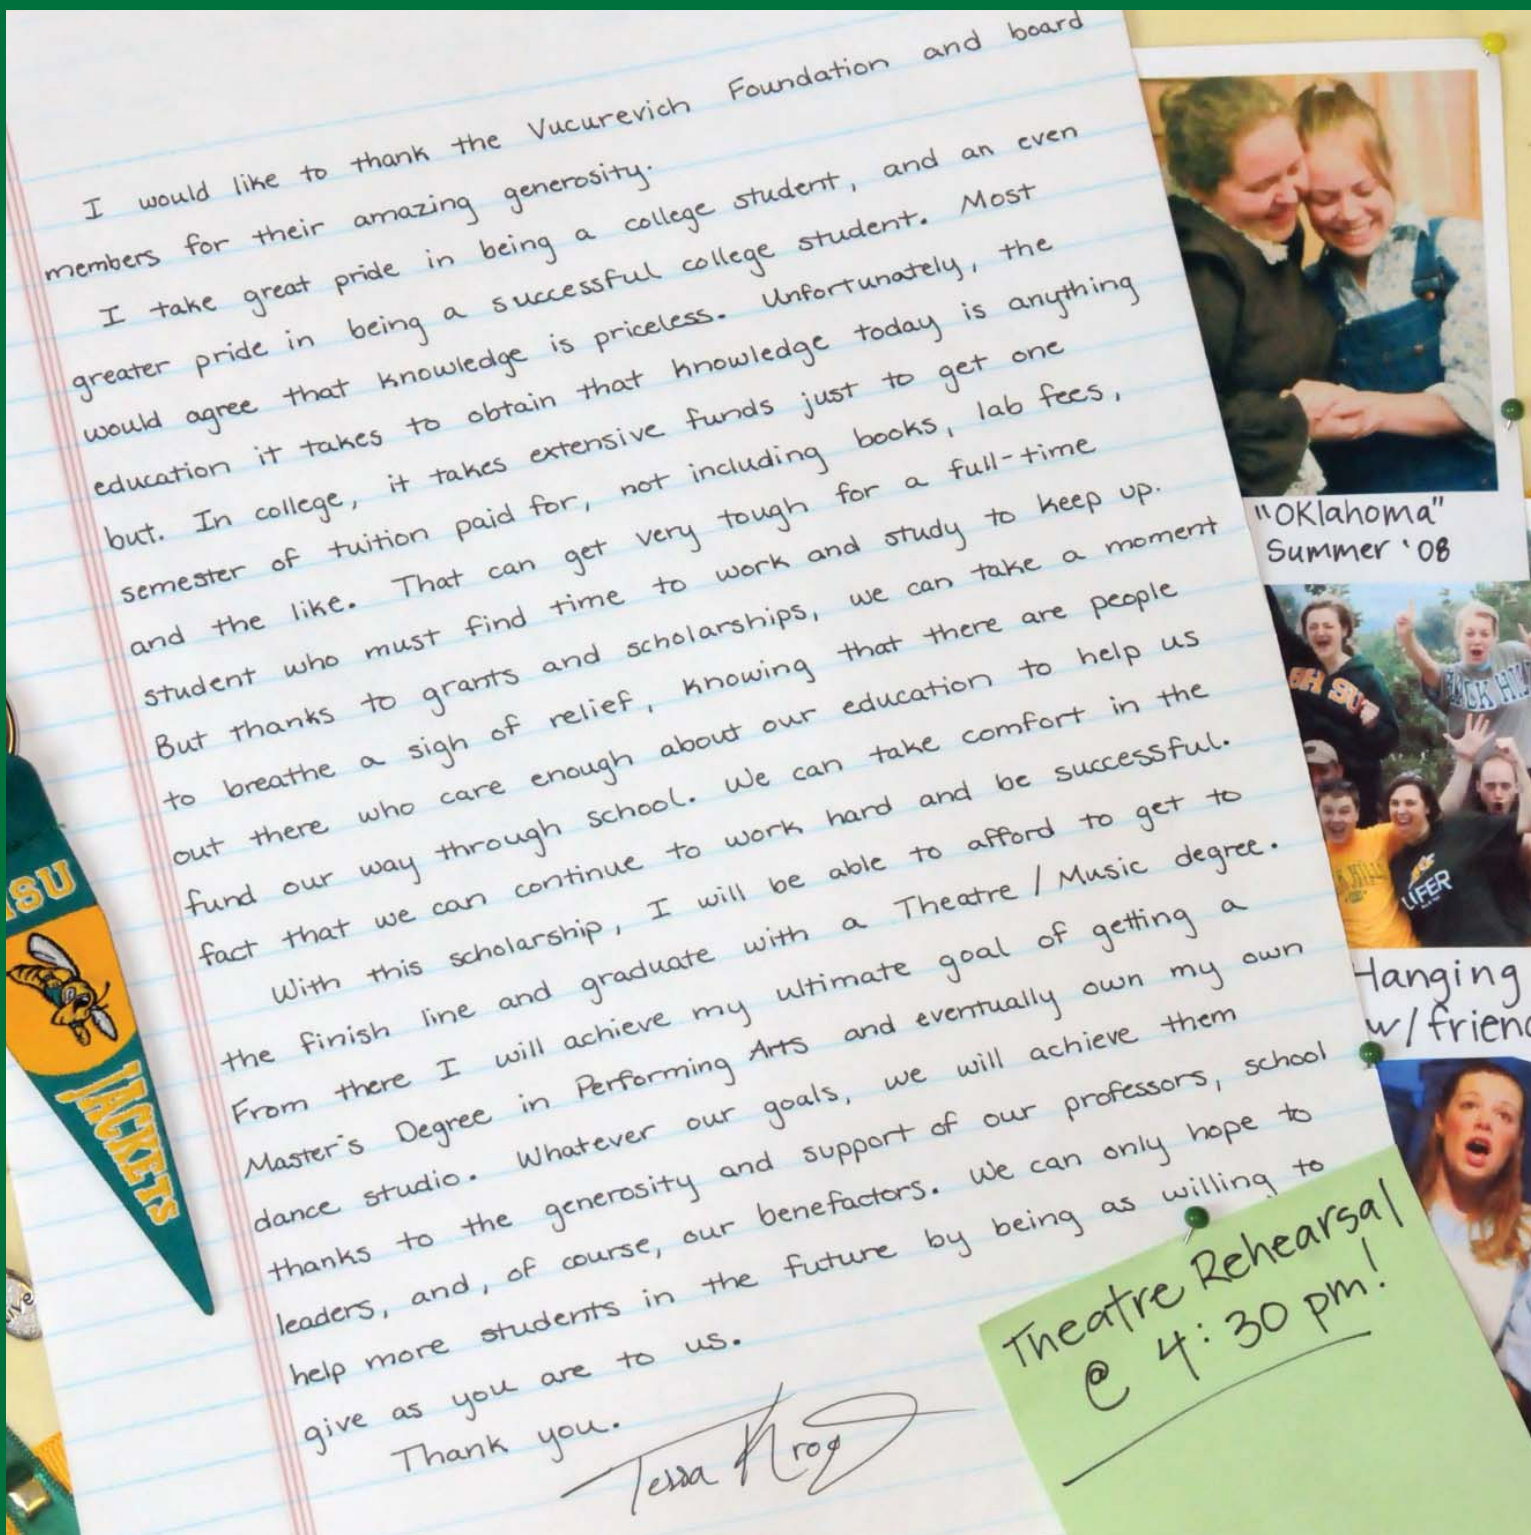 I would like to thank the Vucurevich Foundation and board
members for their amazing generosity.
I take great pride in being a college student, and an even
greater pride in being a successful college student. Most
would agree that knowledge is priceless. Unfortunately, the
education it takes to obtain that knowledge today is anything
but. In college, it takes extensive funds just to get one
semester of tuition paid for, not including books, lab fees,
and the like. That can get very tough for a full-time
student who must find time to work and study to keep up.
But thanks to grants and scholarships, we can take a moment
to breathe a sigh of relief, knowing that there are people
out there who care enough about our education to help us
fund our way through school. We can take comfort in the
fact that we can continue to work hard and be successful.
With this scholarship, I will be able to afford to get to
the finish line and graduate with a Theatre / Music degree.
From there I will achieve my ultimate goal of getting a
Master's Degree in Performing Arts and eventually own my own
dance studio. Whatever our goals, we will achieve them
thanks to the generosity and support of our professors, school
leaders, and, of course, our benefactors. We can only hope to
help more students in the future by being as willing to
give as you are to us.
Thank you.
Tessa Krog
Theatre Rehearsal
@ 4:30 pm!
"Oklahoma"
Summer '08
Hanging
w/frien
LIFER
SU
JACKETS